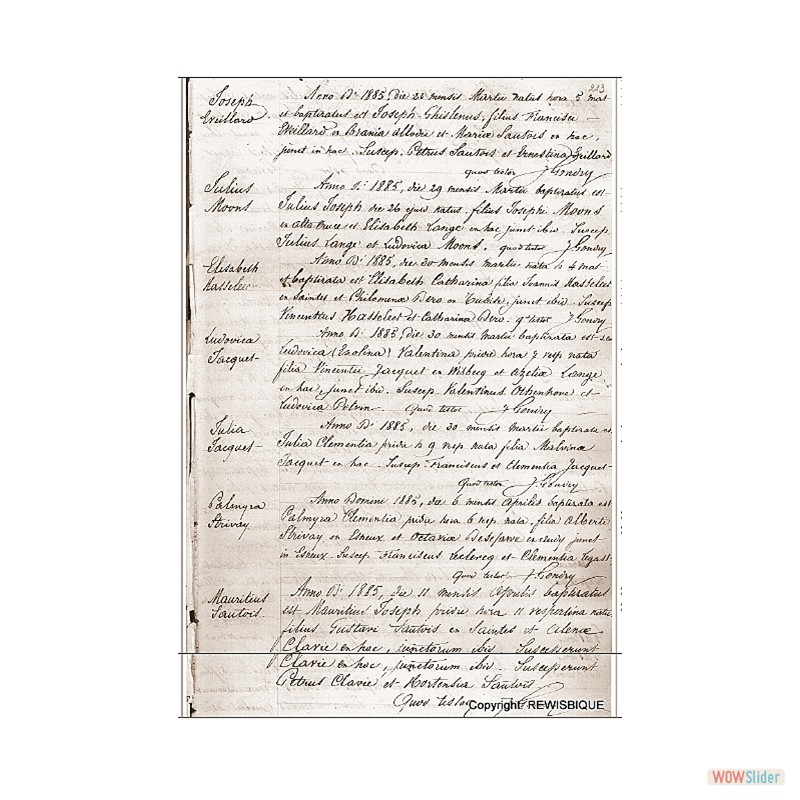 213
Joseph
Grillard
Anno D. 1885, die 28 mensis Martii natus hora 5 mat
et baptizatus est Joseph Ghislenus, filius Francisci
Grillard ex Brania Allodii et Maria Sautois ex hac,
junct in hac. Suscep. Petrus Sautois et Ernestina Grillard
quod testor J Gondry
Julius
Moons
Anno D. 1885, die 29 mensis Martii baptizatus est
Julius Joseph die 26 ejusd natus. filius Josephi Moons
ex alta Cruce et Elisabeth Lange ex hac junct ibid. Suscep
Julius Lange et Ludovica Moons. quod testor J Gondry
Elisabeth
Hasseleer
Anno D. 1885, die 30 mensis martii nata h 4 mat
et baptizata est Elisabeth Catharina filia Joannis Hasseleer
ex Saintes et Philomena Dero ex Tubize, junct ibid. Suscep
Vincentius Hasseleer et Catharina Dero. qd testor J Gondry
Ludovica
Jacquet
Anno D. 1885, die 30 mensis Martii baptizata est
Ludovica Valentina pridie hora 7 vesp nata
filia Vincentii Jacquet ex Wisbecq et Azelia Lange
ex hac, junct ibid. Suscep. Valentinus et
Ludovica. Quod testor J Gondry
Julia
Jacquet
Anno D. 1885, die 30 mensis Martii baptizata est
Julia Clementia pridie h 9 vesp nata filia Malvina
Jacquet ex hac. Suscep. Franciscus et Clementia Jacquet
Quod testor J. Gondry
Palmyra
Strivay
Anno Domini 1885, die 6 mensis Aprilis baptizata est
Palmyra Clementia pridie hora 6 vesp nata, filia Alberti
Strivay ex Esneux et Octavia ex junct
in Esneux. Suscep. Franciscus Leclercq et Clementia
Quod testor J Gondry
Mauritius
Sautois.
Anno D. 1885, die 11 mensis Aprilis baptizatus
est Mauritius Joseph pridie hora 11 vespertina natus
filius Gustavi Sautois ex Saintes et
Clavie ex hac, junctorum ibid. Susceperunt
Clavie ex hac, junctorum ibid. Susceperunt
Petrus Clavie et Hortensia Sautois
Quod testor
Copyright- REWISBIQUE
WOWSlider